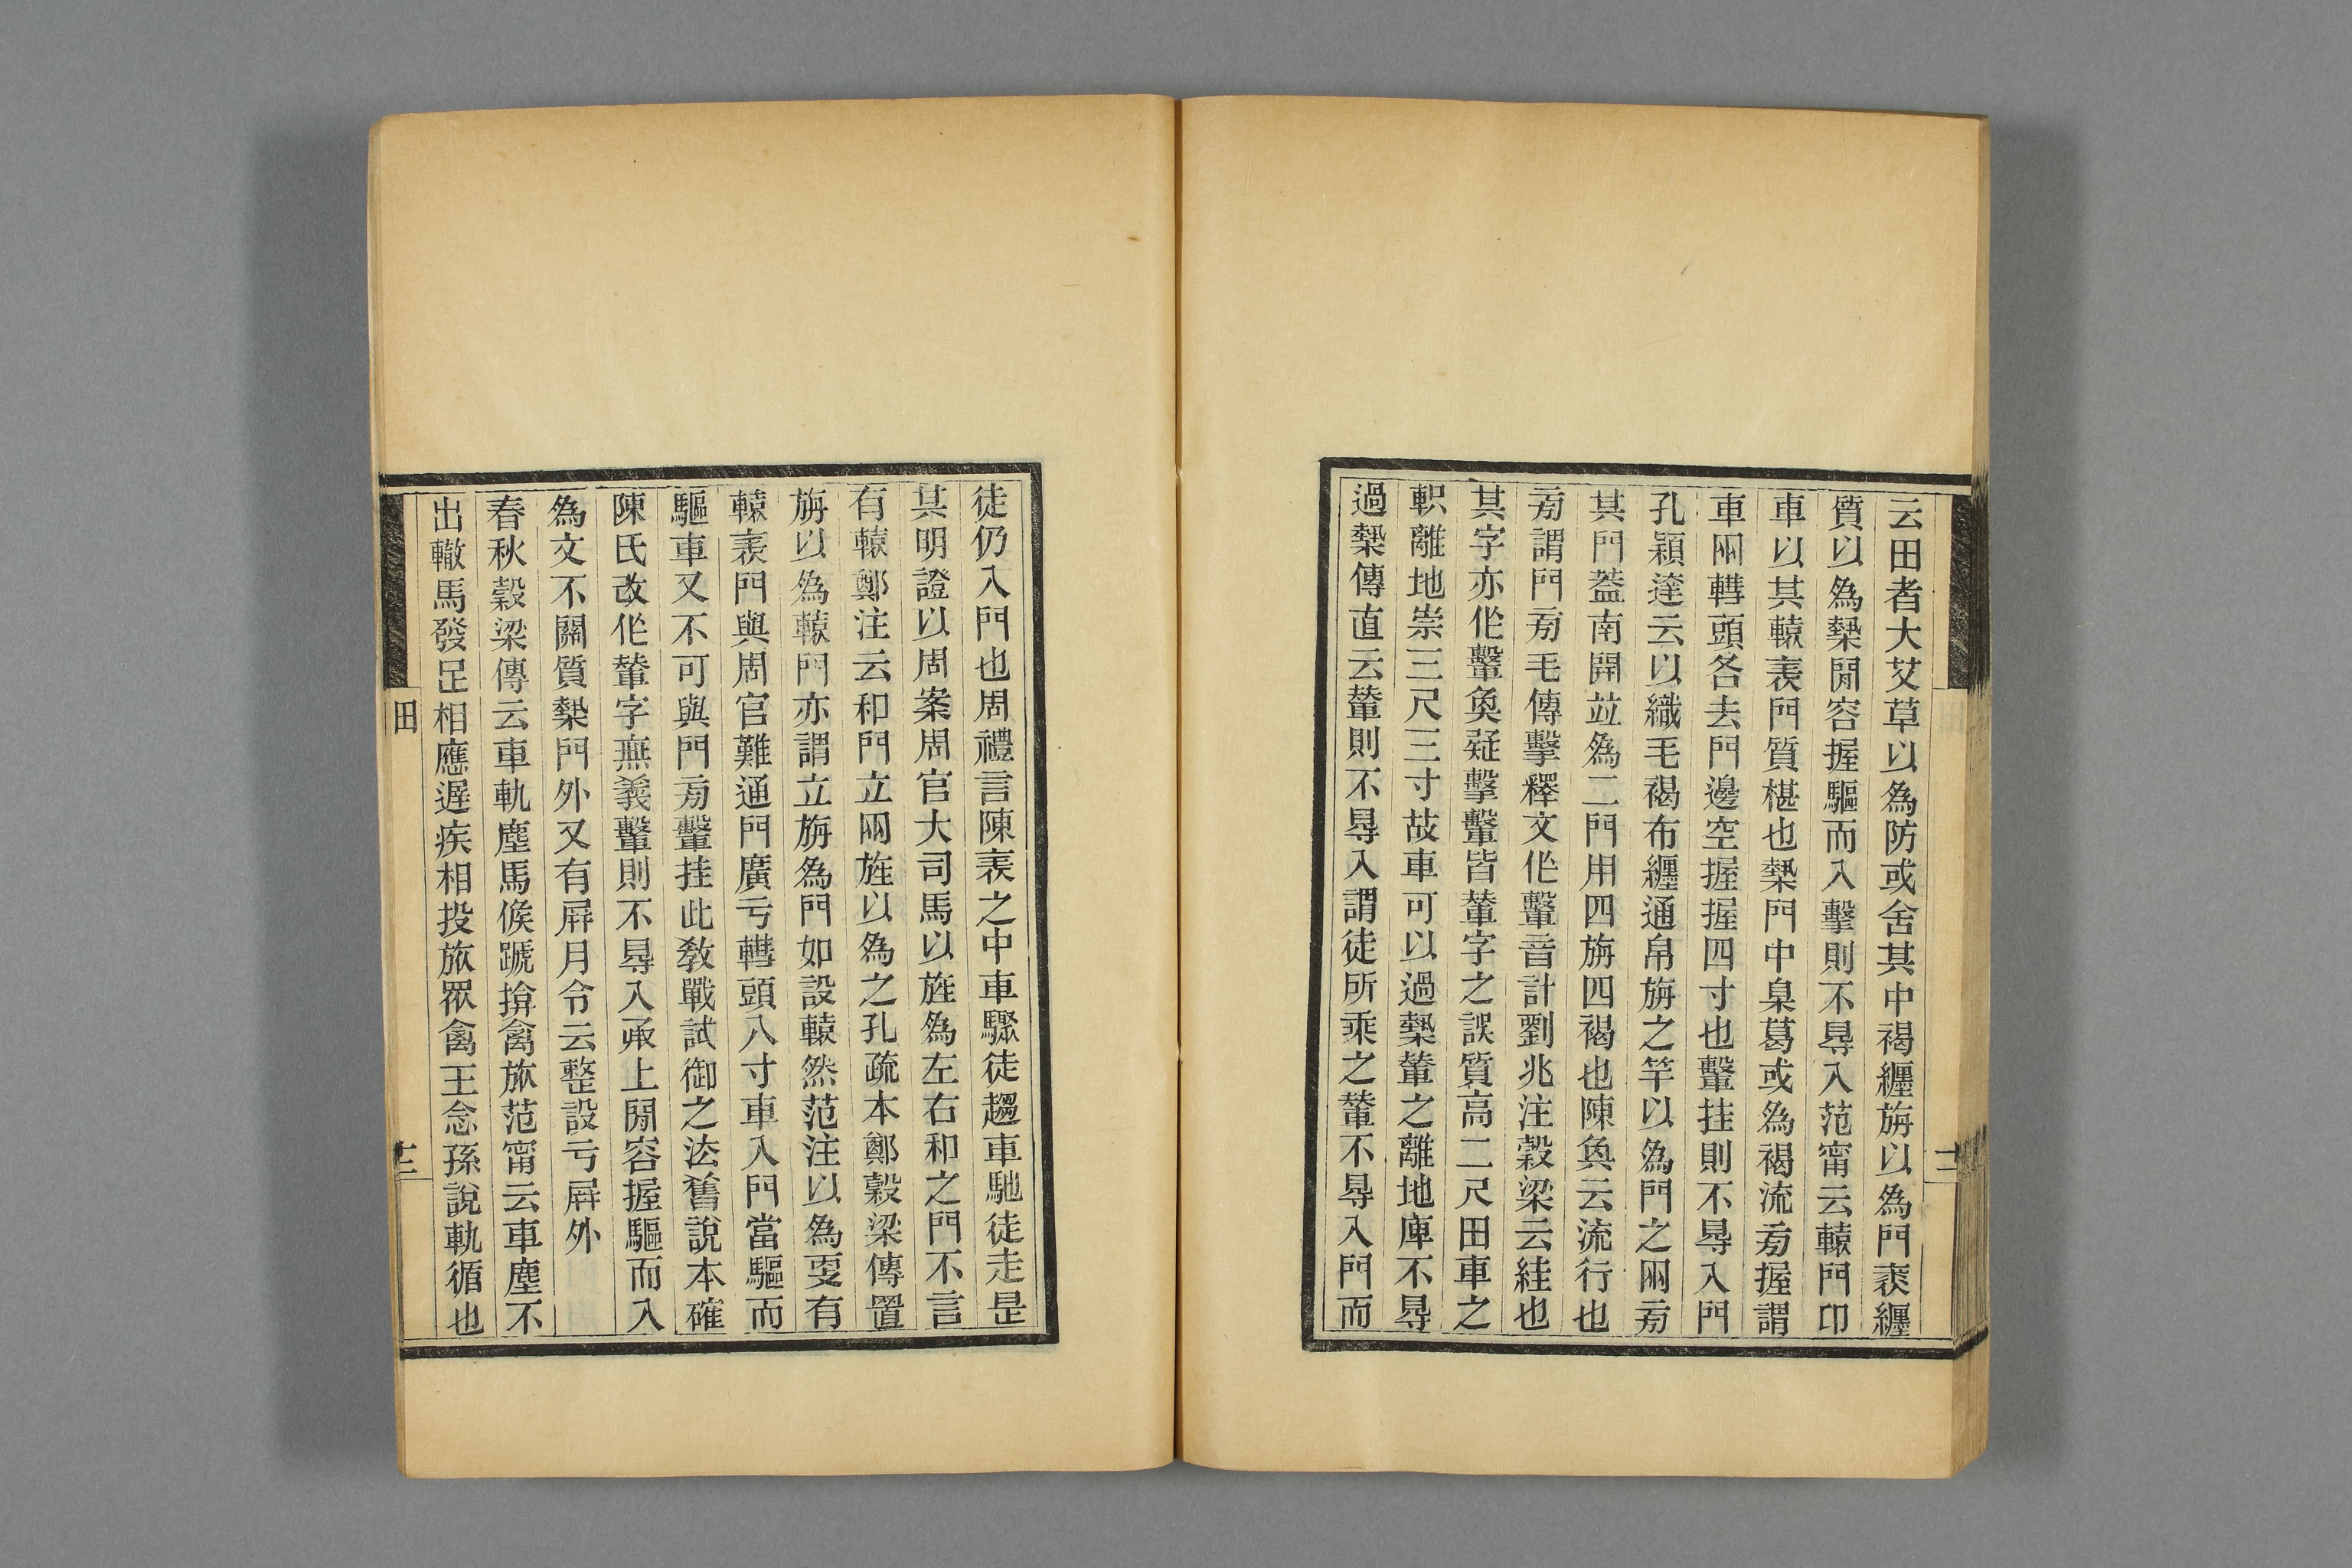 云田者大艾草以爲防或舍其中褐纏旃以爲門裘纏
質以爲槷閒容握驅而入擊則不㝵入范甯云轅門卬
車以其轅表門質椹也槷門中臬葛或爲褐流㫄握謂
車兩轊頭各去門邊空握握四寸也轚挂則不㝵入門
孔穎達云以織毛褐布纏通帛旃之竿以爲門之兩㫄
其門葢南開竝爲二門用四旃四褐也陳奐云流行也
㫄謂門㫄毛傳擊釋文作轚音計劉兆注穀梁云絓也
其字亦作轚奐疑擊轚皆䡝字之誤質高二尺田車之
軹離地崇三尺三寸故車可以過槷䡝之離地庳不㝵
過槷傳直云䡝則不㝵入謂徒所乘之䡝不㝵入門而
徒仍入門也周禮言陳表之中車驟徒趨車馳徒走是
其明證以周案周官大司馬以旌爲左右和之門不言
有轅鄭注云和門立兩旌以爲之孔疏本鄭穀梁傳置
旃以爲轅門亦謂立旃爲門如設轅然范注以爲叓有
轅表門與周官難通門廣亏轊頭八寸車入門當驅而
驅車又不可與門㫄轚挂此敎戰試御之法舊說本確
陳氏改作䡝字無義轚則不㝵入承上閒容握驅而入
爲文不關質槷門外又有屛月令云整設亏屛外
春秋穀梁傳云車軌塵馬候蹏揜禽旅范甯云車塵不
出轍馬發足相應遲疾相投旅眾禽王念孫說軌循也
田
十三